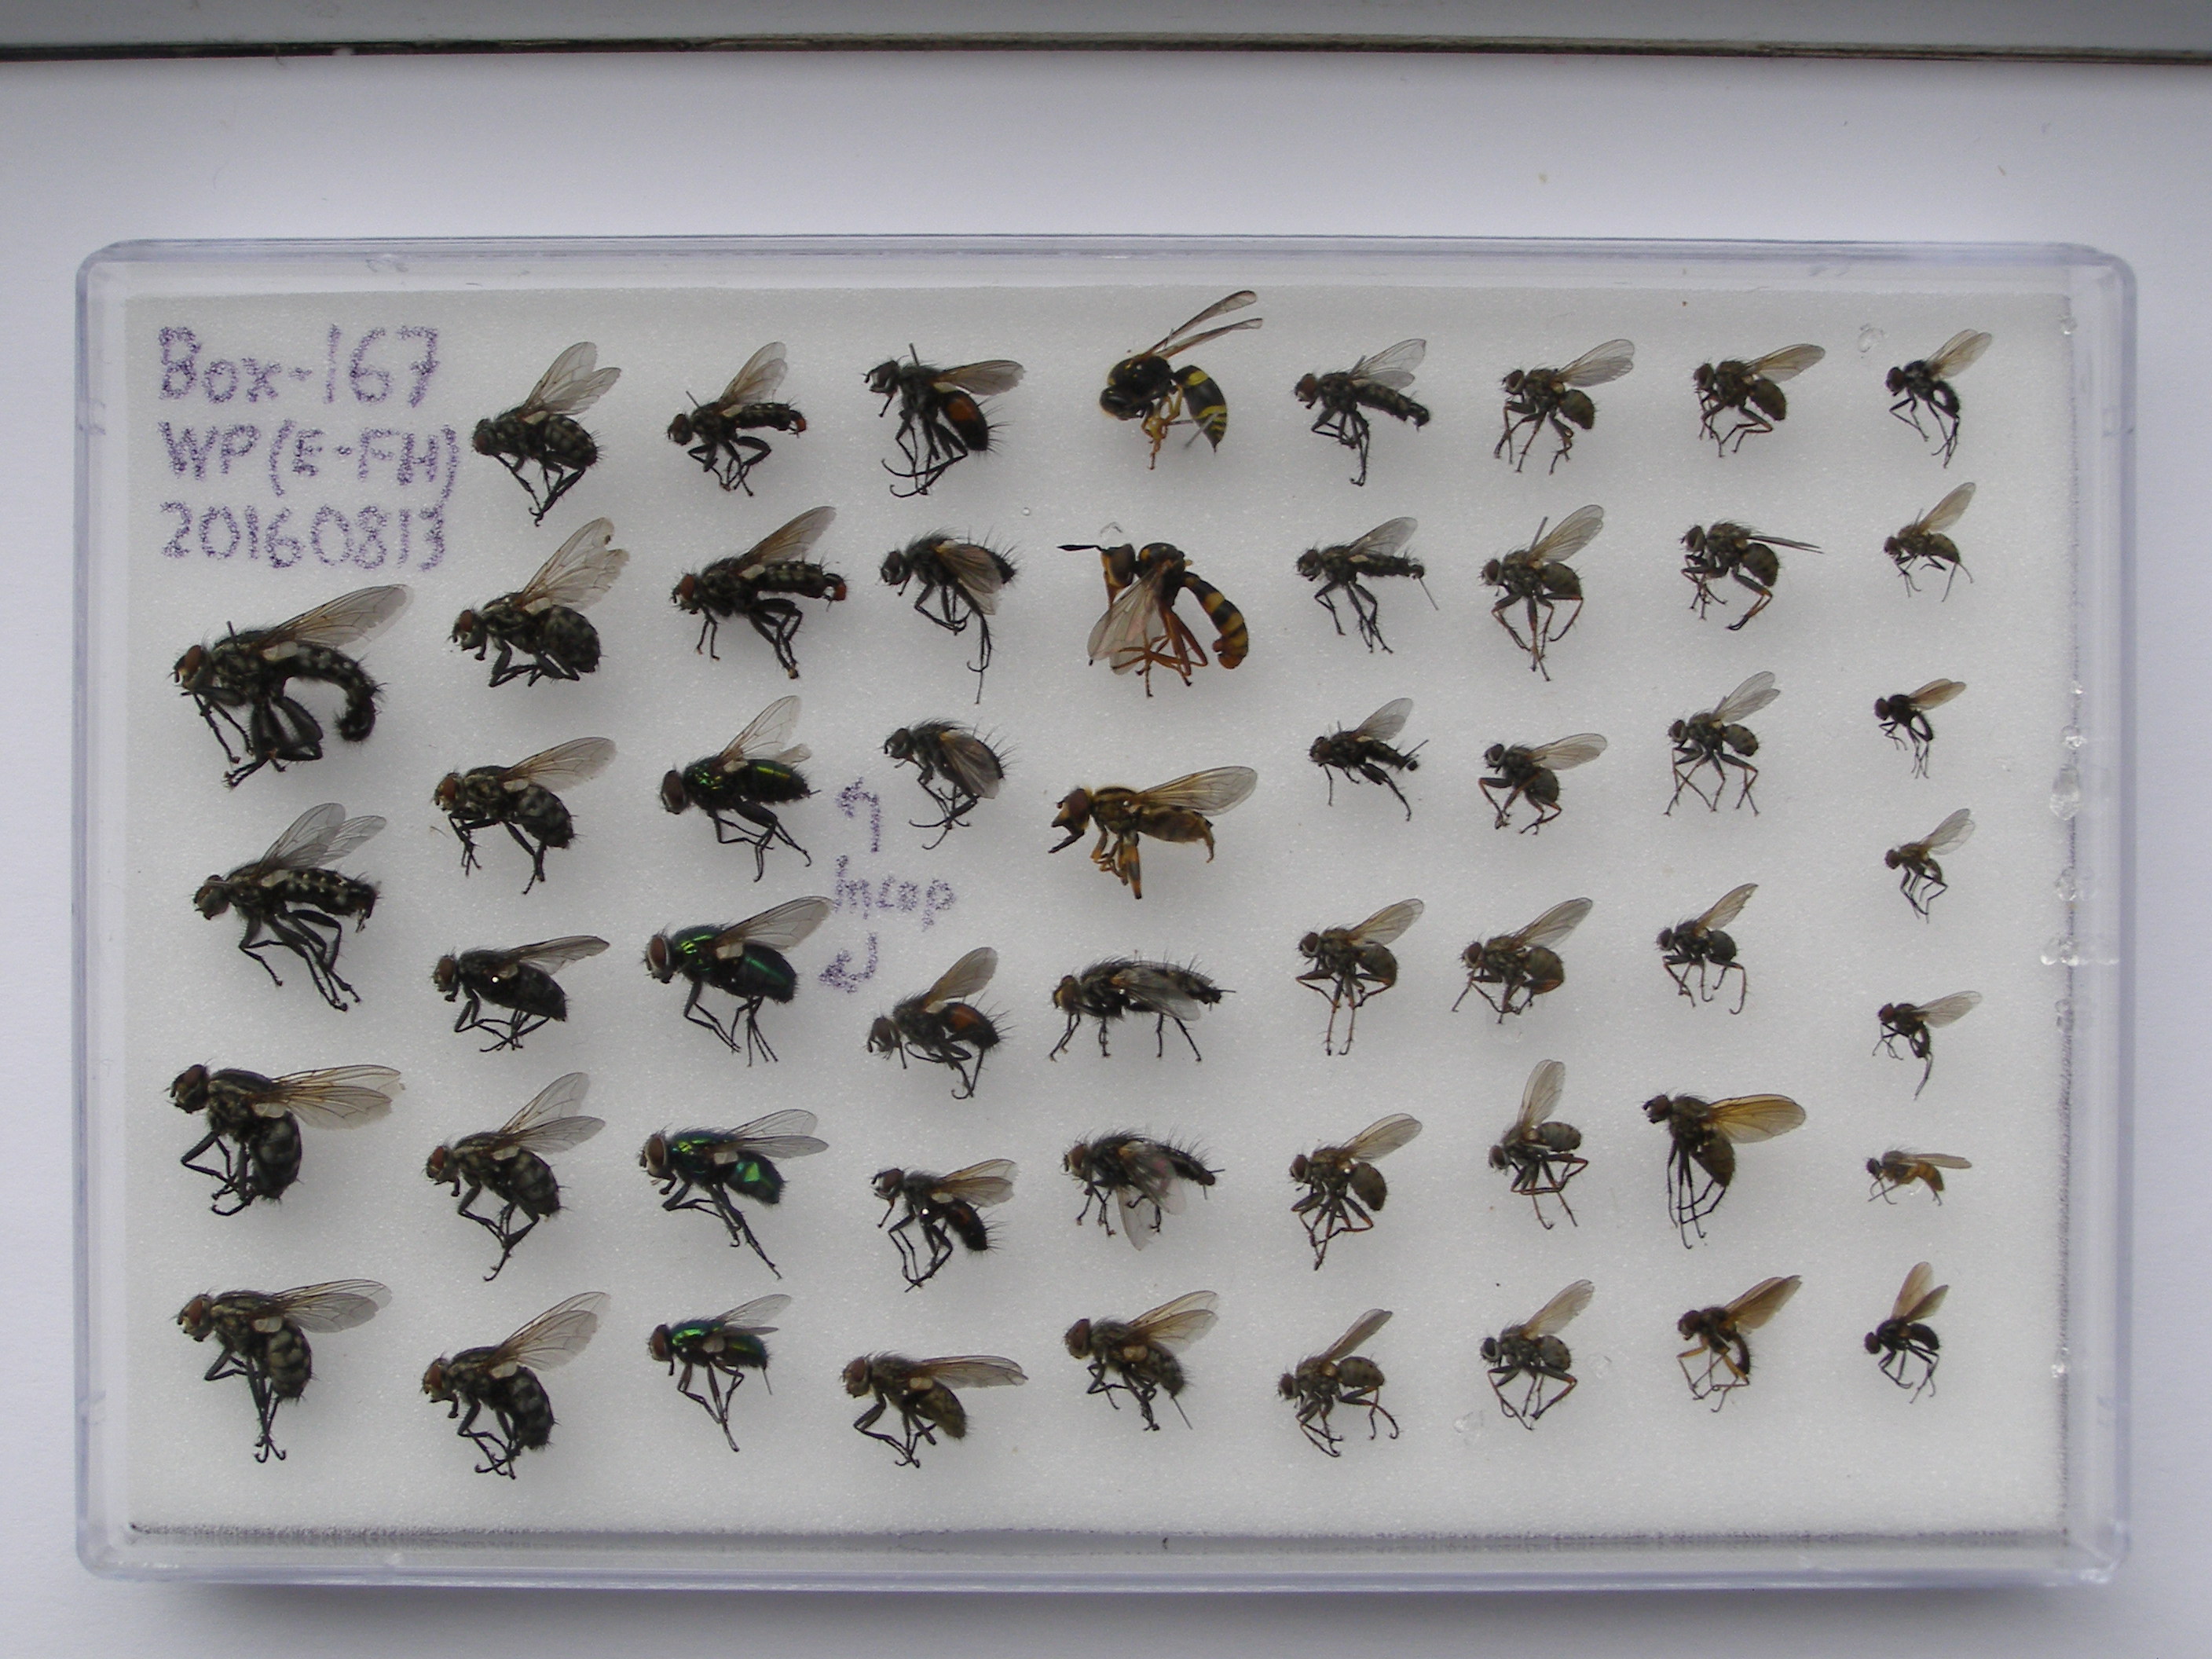 Box-167
WP(E-FH)
20160813
Incop